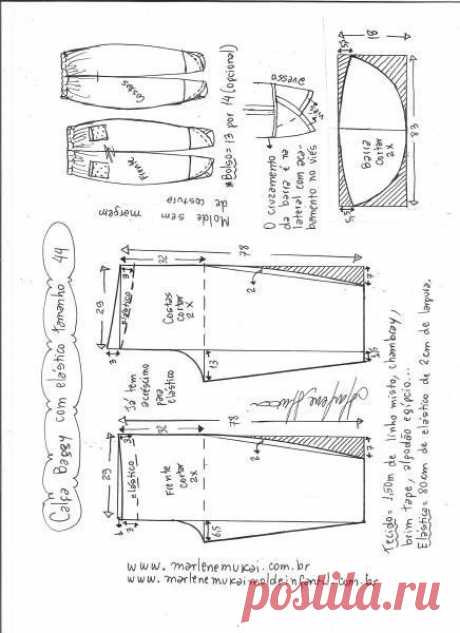 Calça Baggy com elástico tamanho 44
Costas
Frente
* Bolso = 13 por 14 (opcional)
Molde sem
margem
de costura
avesso
O cruzamento
da barra é na
lateral com aca-
bamento no viés
18
5,5
Barra
cortar
2x
83
5,5
78
32
29
3
3
elástico
Costas
cortar
2x
2
7
13
6,5
Já tem
acréscimo
para
elástico
78
32
29
3
3
elástico
Frente
cortar
2x
2
7
6,5
Tecido = 1,50m de linho misto, chambray,
brim tape, algodão egípcio...
Elástico = 80cm de elástico de 2cm de largura.
www.marlenemukai.com.br
www.marlenemukaimoldeinfantil.com.br
postila.ru